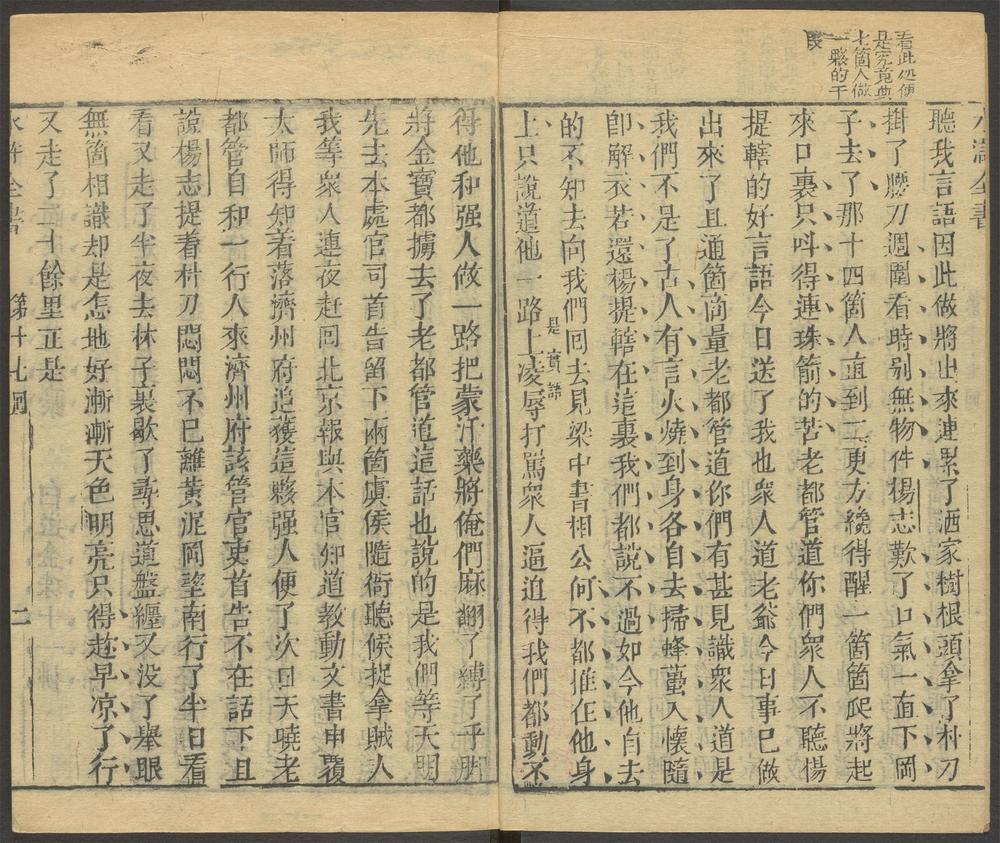 看此処便
是究竟與
七箇人做
一夥的干
水滸全書
聽我言語因此做將出來連累了洒家樹根頭拿了朴刀
掛了腰刀週圍看時别無物件楊志歎了口氣一直下岡
子去了那十四箇人直到二更方纔得醒一箇箇爬將起
來口裏只呌得連珠箭的苦老都管道你們衆人不聽楊
提轄的好言語今日送了我也衆人道老爺今日事已做
出來了且通箇商量老都管道你們有甚見識衆人道是
我們不是了古人有言火燒到身各自去掃蜂蠆入懷隨
卽解衣若還楊提轄在這裏我們都說不過如今他自去
的不知去向我們囘去見梁中書相公何不都推在他身
是實話
上只說道他一路上凌辱打罵衆人逼迫得我們都動不
得他和强人做一路把蒙汗藥將俺們麻翻了縛了手脚
將金寶都擄去了老都管道這話也說的是我們等天明
先去本處官司首告留下兩箇虞候隨衙聽候捉拿賊人
我等衆人連夜赶囘北京報與本官知道教動文書申覆
太師得知着落濟州府追獲這夥强人便了次日天曉老
都管自和一行人來濟州府該管官吏首告不在話下且
說楊志提着朴刀悶悶不已離黄泥岡望南行了半日看
看又走了半夜去林子裏歇了尋思道盤纏又没了舉眼
無箇相識却是怎地好漸漸天色明亮只得趂早凉了行
又走了二十餘里正是
水滸全書 第十七囘 二